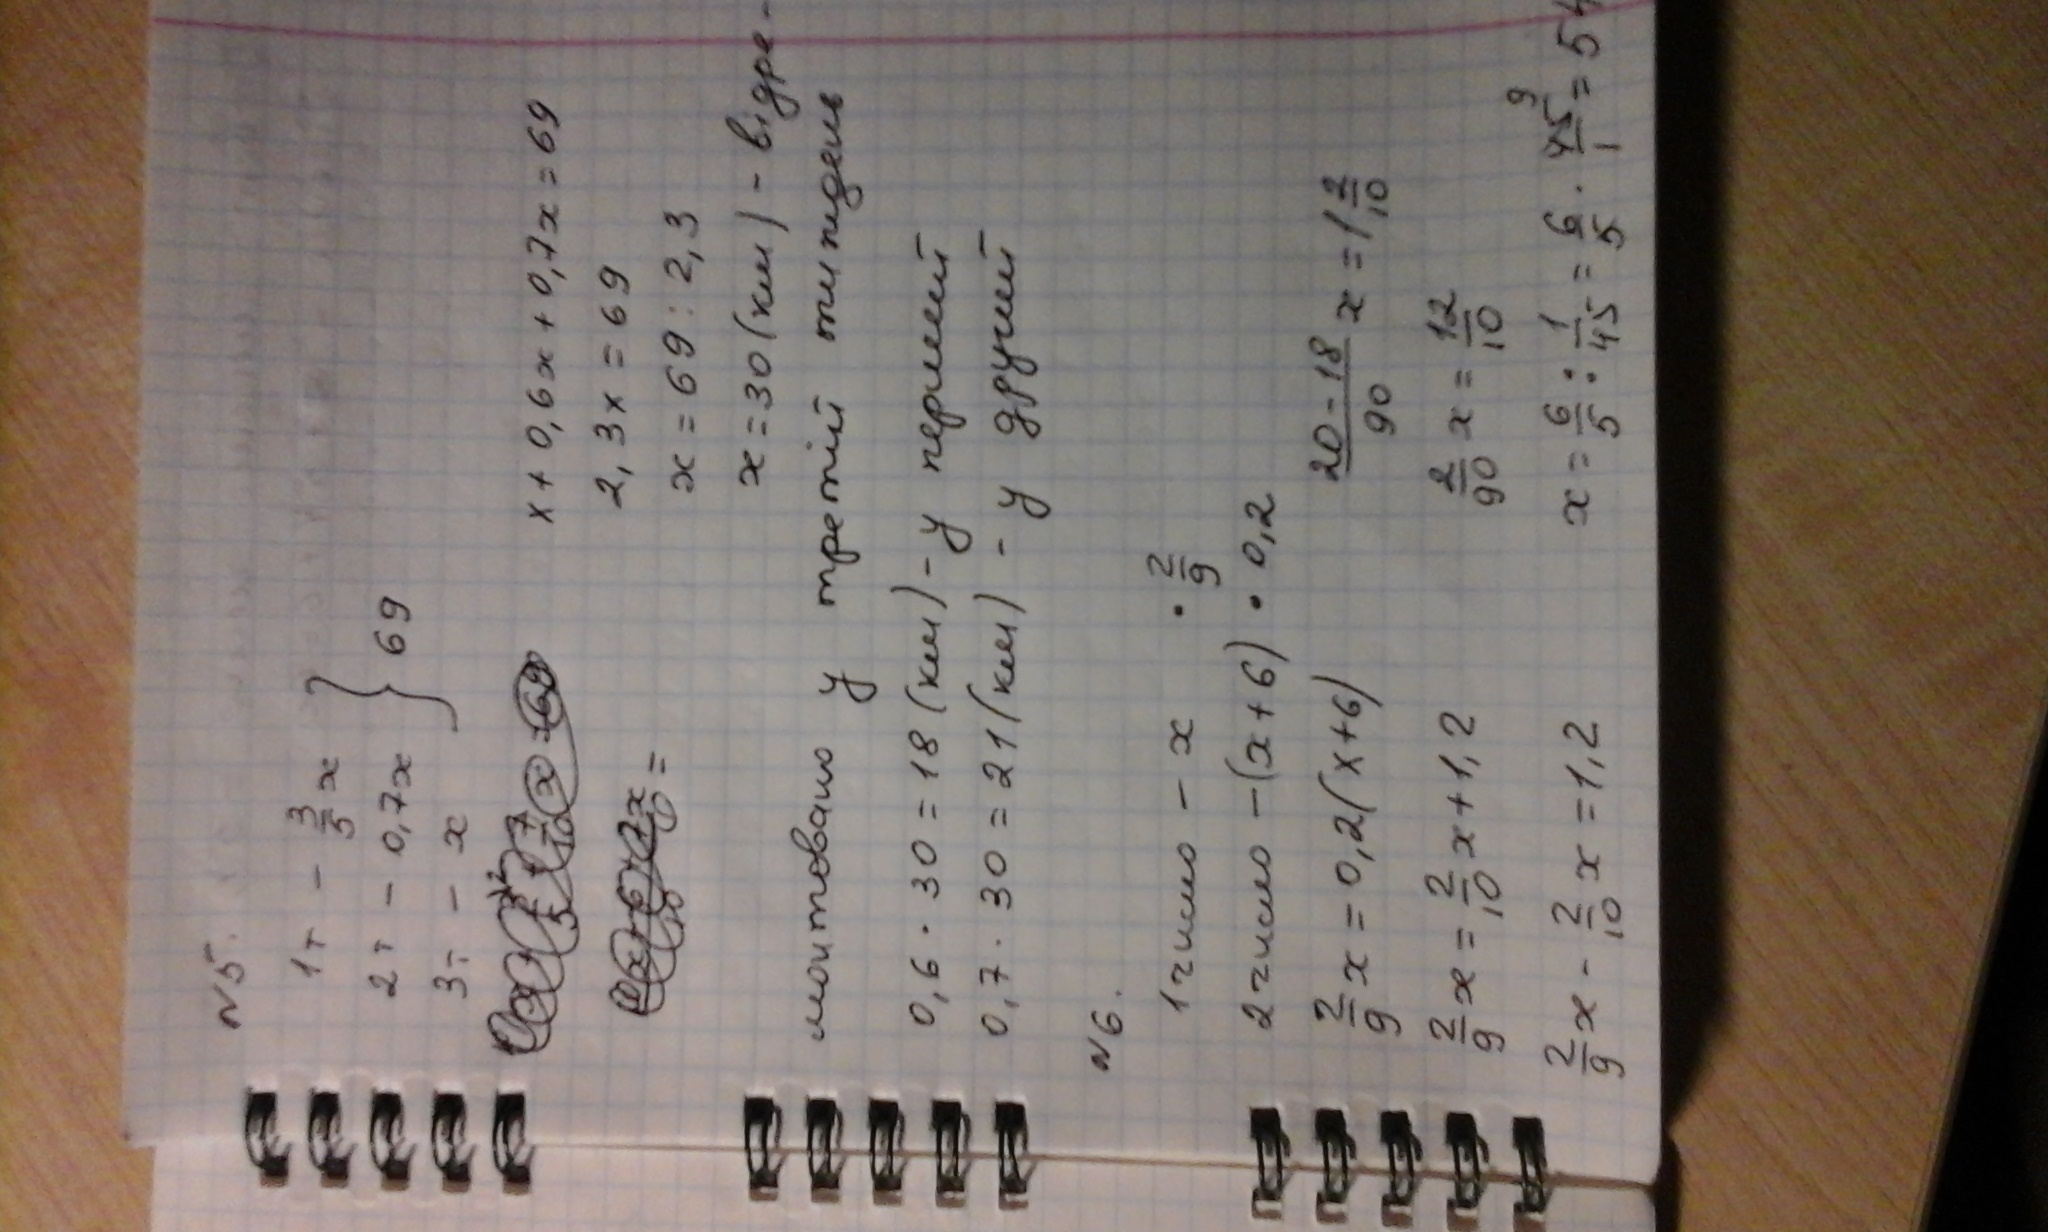 №5.
1т - 3/5 x
2т - 0,7x } 69
3т - x
x + 0,6x + 0,7x = 69
2,3x = 69
x = 69 : 2,3
x = 30 (км) - відре-
монтовано у третій тиждень
0,6 · 30 = 18 (км) - у перший
0,7 · 30 = 21 (км) - у другий
№6.
1 число - x · 2/9
2 число - (x + 6) · 0,2
2/9 x = 0,2(x+6)
2/9 x = 2/10 x + 1,2
2/9 x - 2/10 x = 1,2
20-18/90 x = 1 2/10
2/90 x = 12/10
x = 6/5 : 1/45 = 6/5 · 45/1 9 = 54